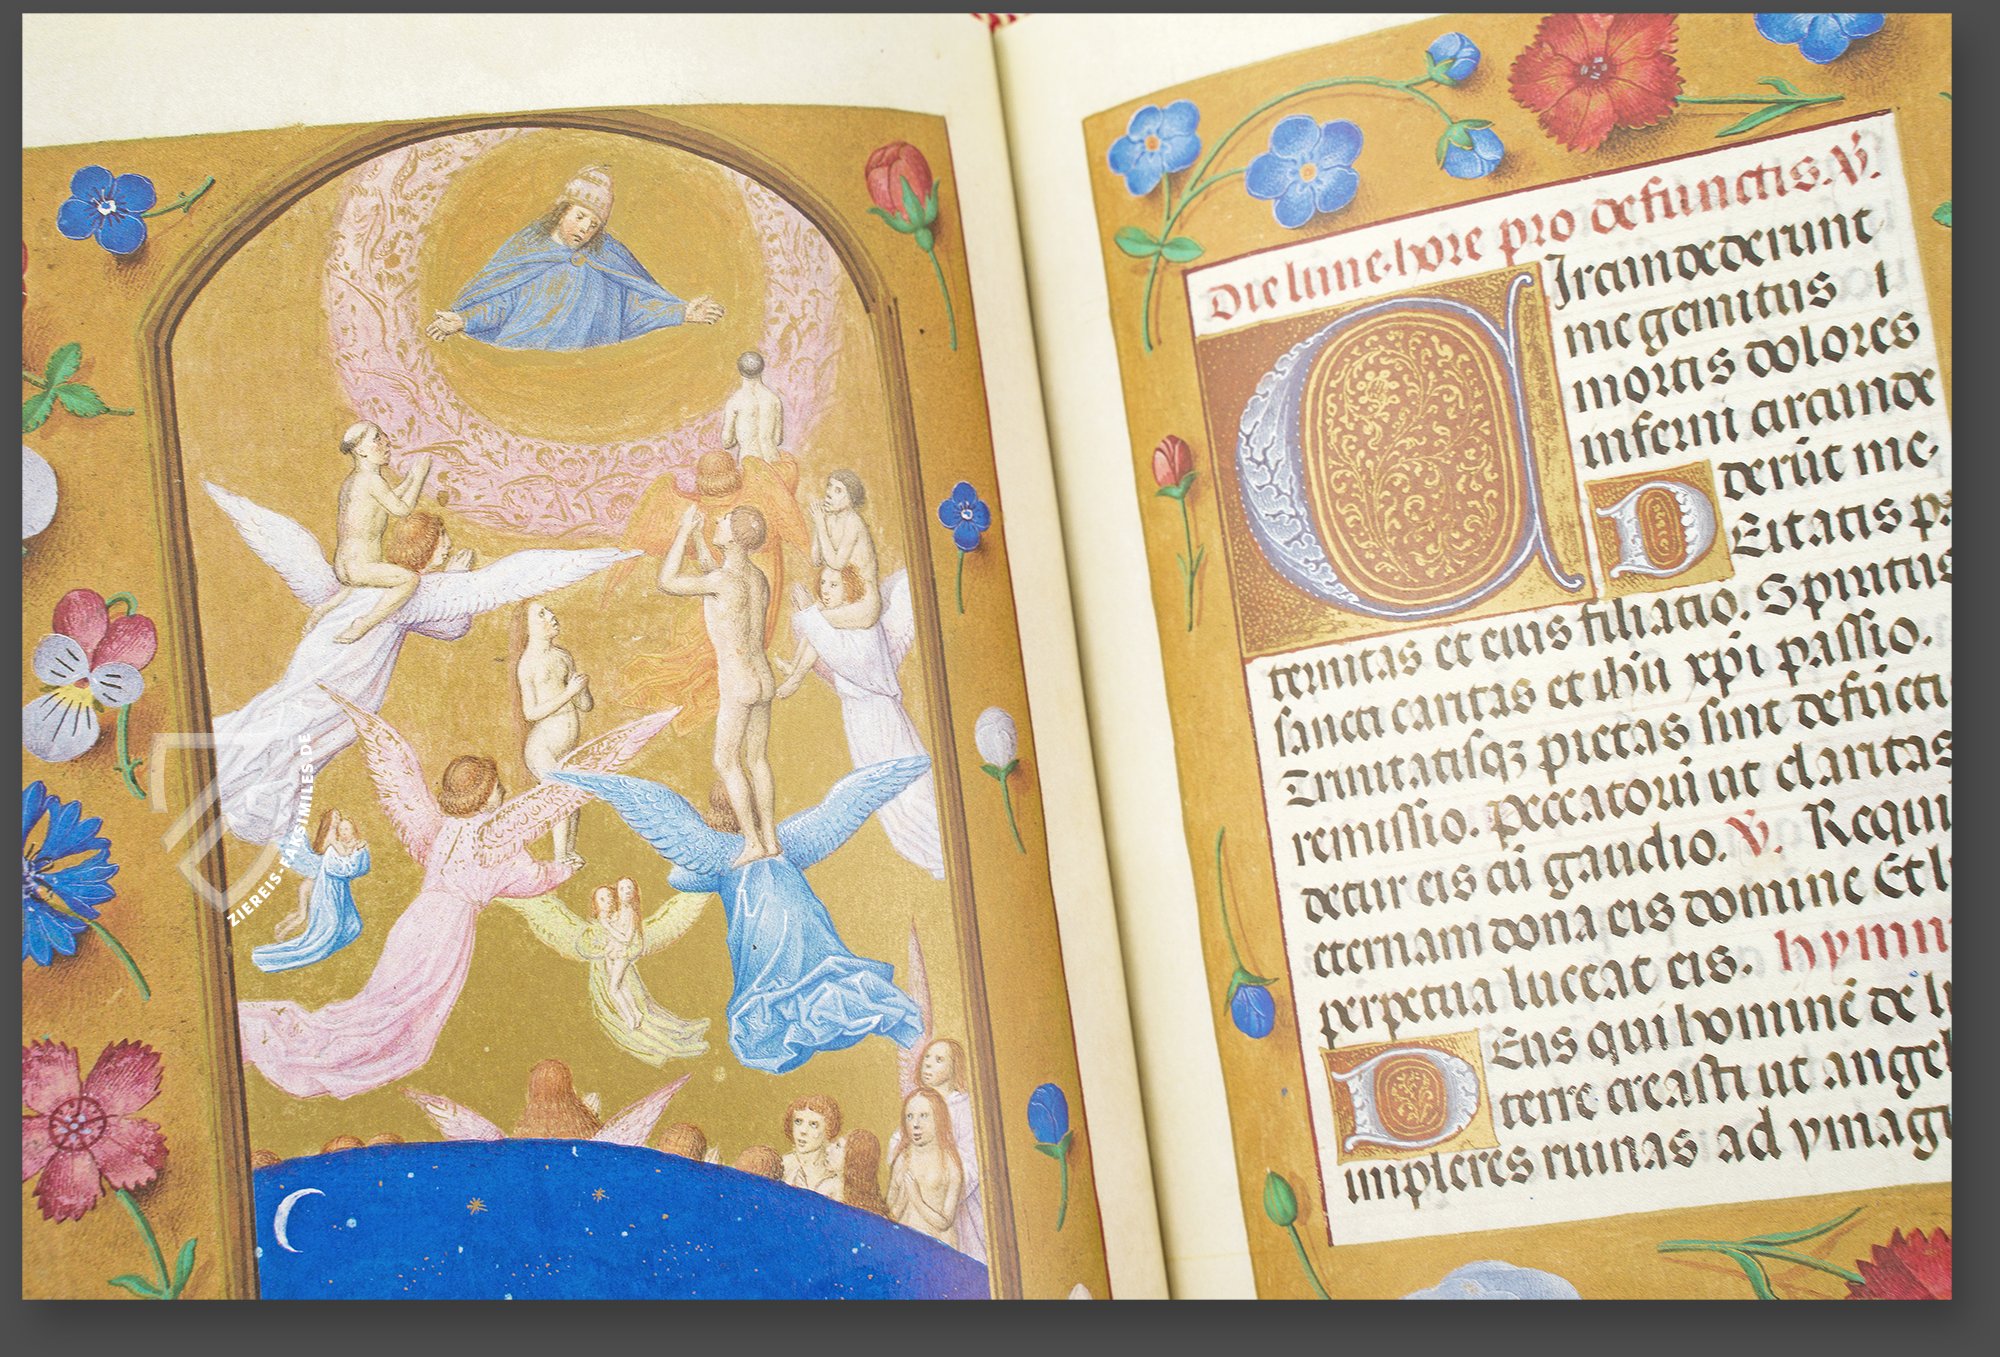 ZIEREIS-FAKSIMILES.DE
Die lune. hore pro defunctis. V.
Circundederunt
me gemitus
mortis dolores
inferni circunde
derūt me.
Deitatis p
ternitas et eius filiatio. Spiritus
sancti caritas et ihū xp̄i passio.
Trinitatisqꝫ pietas sint defūcti
remissio. peccatorū ut claritas
detur eis cū gaudio. V. Requi
eternam dona eis domine Et l
perpetua luceat eis. hymn
Deus qui hominē de li
terre creasti ut angel
impleres ruinas ad ymagi